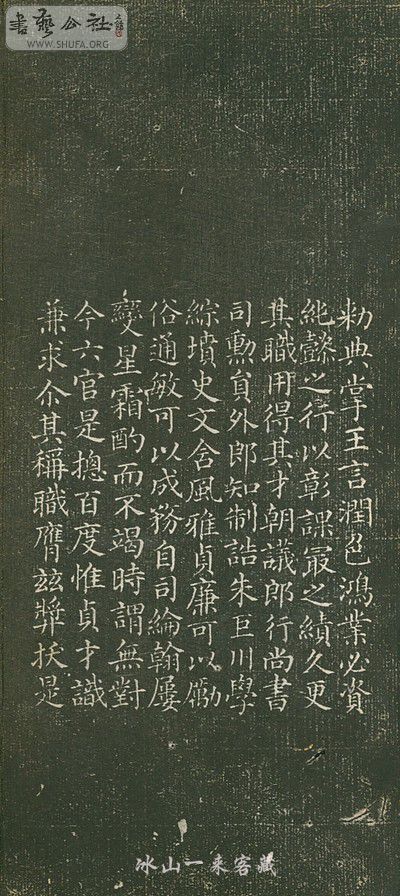 書藝公社
WWW.SHUFA.ORG
勑典掌王言潤色鴻業必資
純懿之行以彰課冣之績久更
其職用得其才朝議郎行尚書
司勳負外郎知制誥朱巨川學
綜墳史文含風雅貞廉可以勵
俗通敏可以成務自司綸翰屢
變星霜酌而不竭時謂無對
今六官是揔百度惟貞才識
兼求尒其稱職膺兹奬抜是
冰山一來客藏